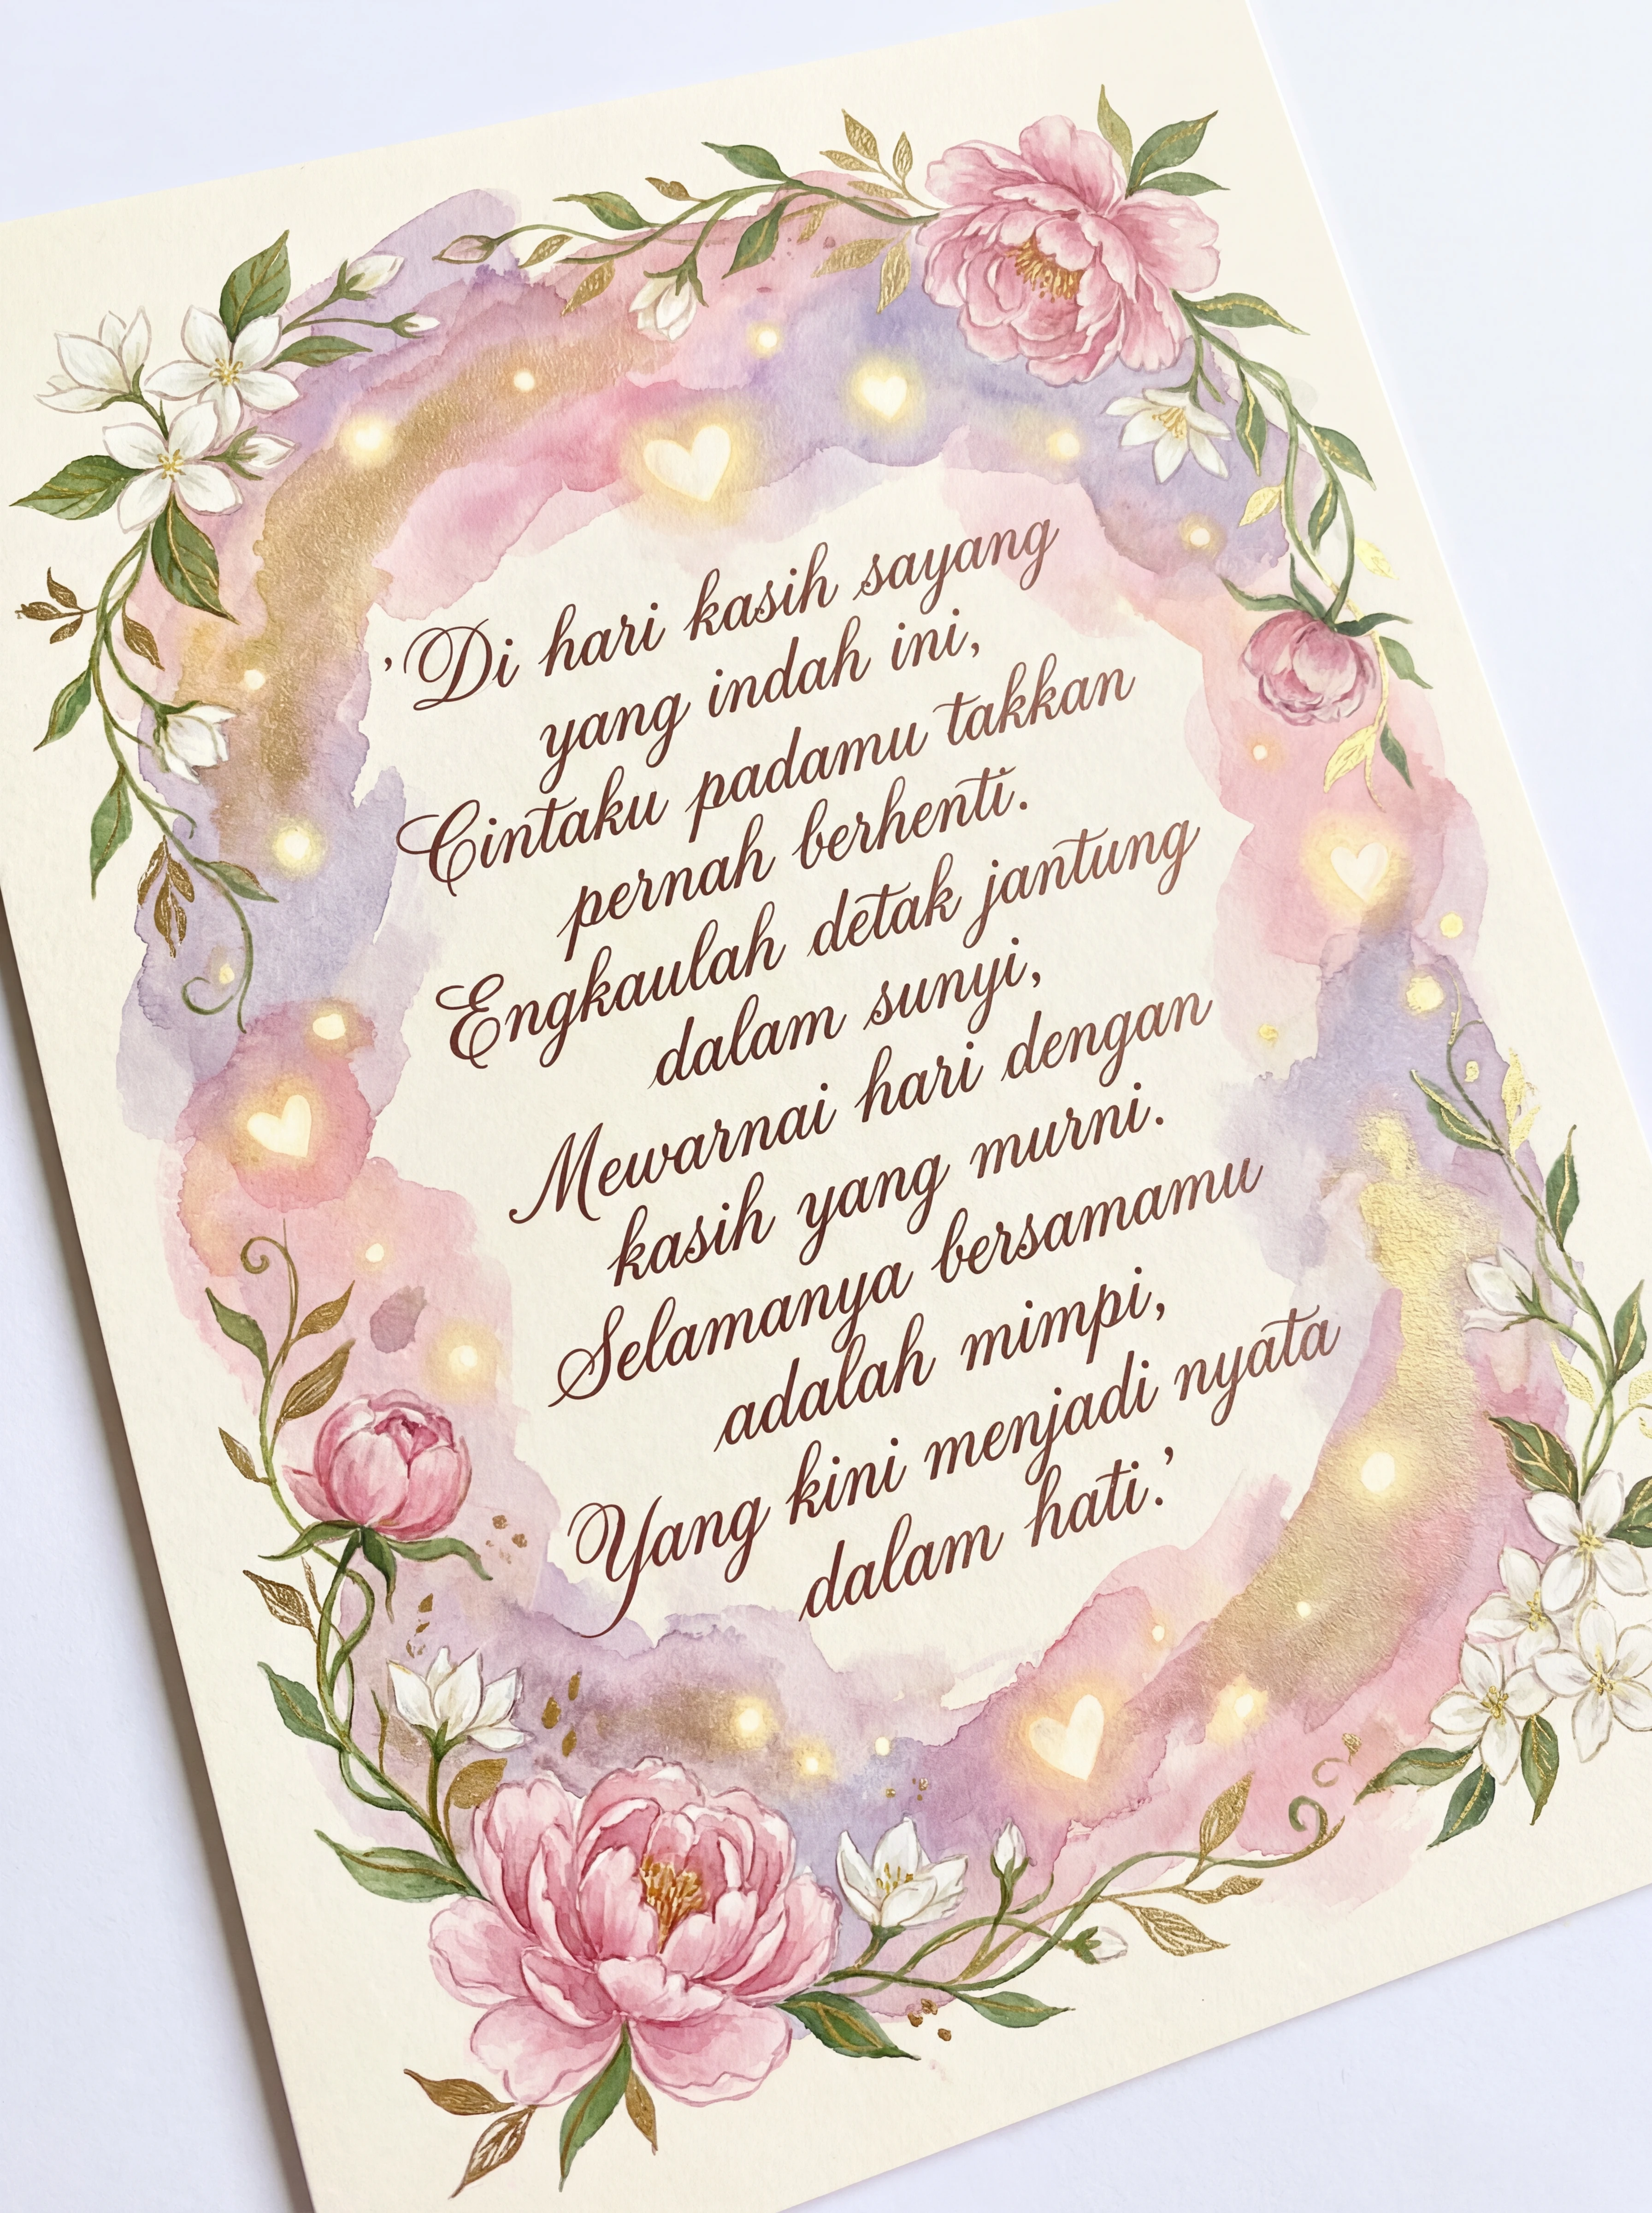 'Di hari kasih sayang
yang indah ini,
Cintaku padamu takkan
pernah berhenti.
Engkaulah detak jantung
dalam sunyi,
Mewarnai hari dengan
kasih yang murni.
Selamanya bersamamu
adalah mimpi,
Yang kini menjadi nyata
dalam hati.'